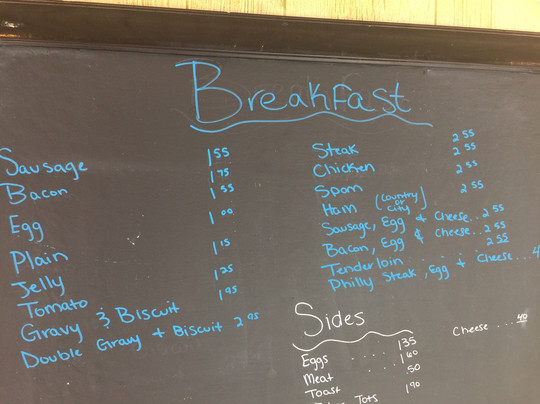 Breakfast
Sausage 1 55
Bacon 1 75
Egg 1 55
Plain 1 00
Jelly 1 15
Tomato 1 25
Gravy & Biscuit 1 95
Double Gravy + Biscuit 2 95
Steak 2 55
Chicken 2 55
Spam 2 55
Ham (Country or City) 2 55
Sausage, Egg & Cheese..2 55
Bacon, Egg & Cheese...2 55
Tenderloin . . . . 2 55
Philly Steak, Egg + Cheese...
Sides
Eggs . . . . 1 35
Meat . . . . 1 60
Toast .50
Tots 1 90
Cheese ....40